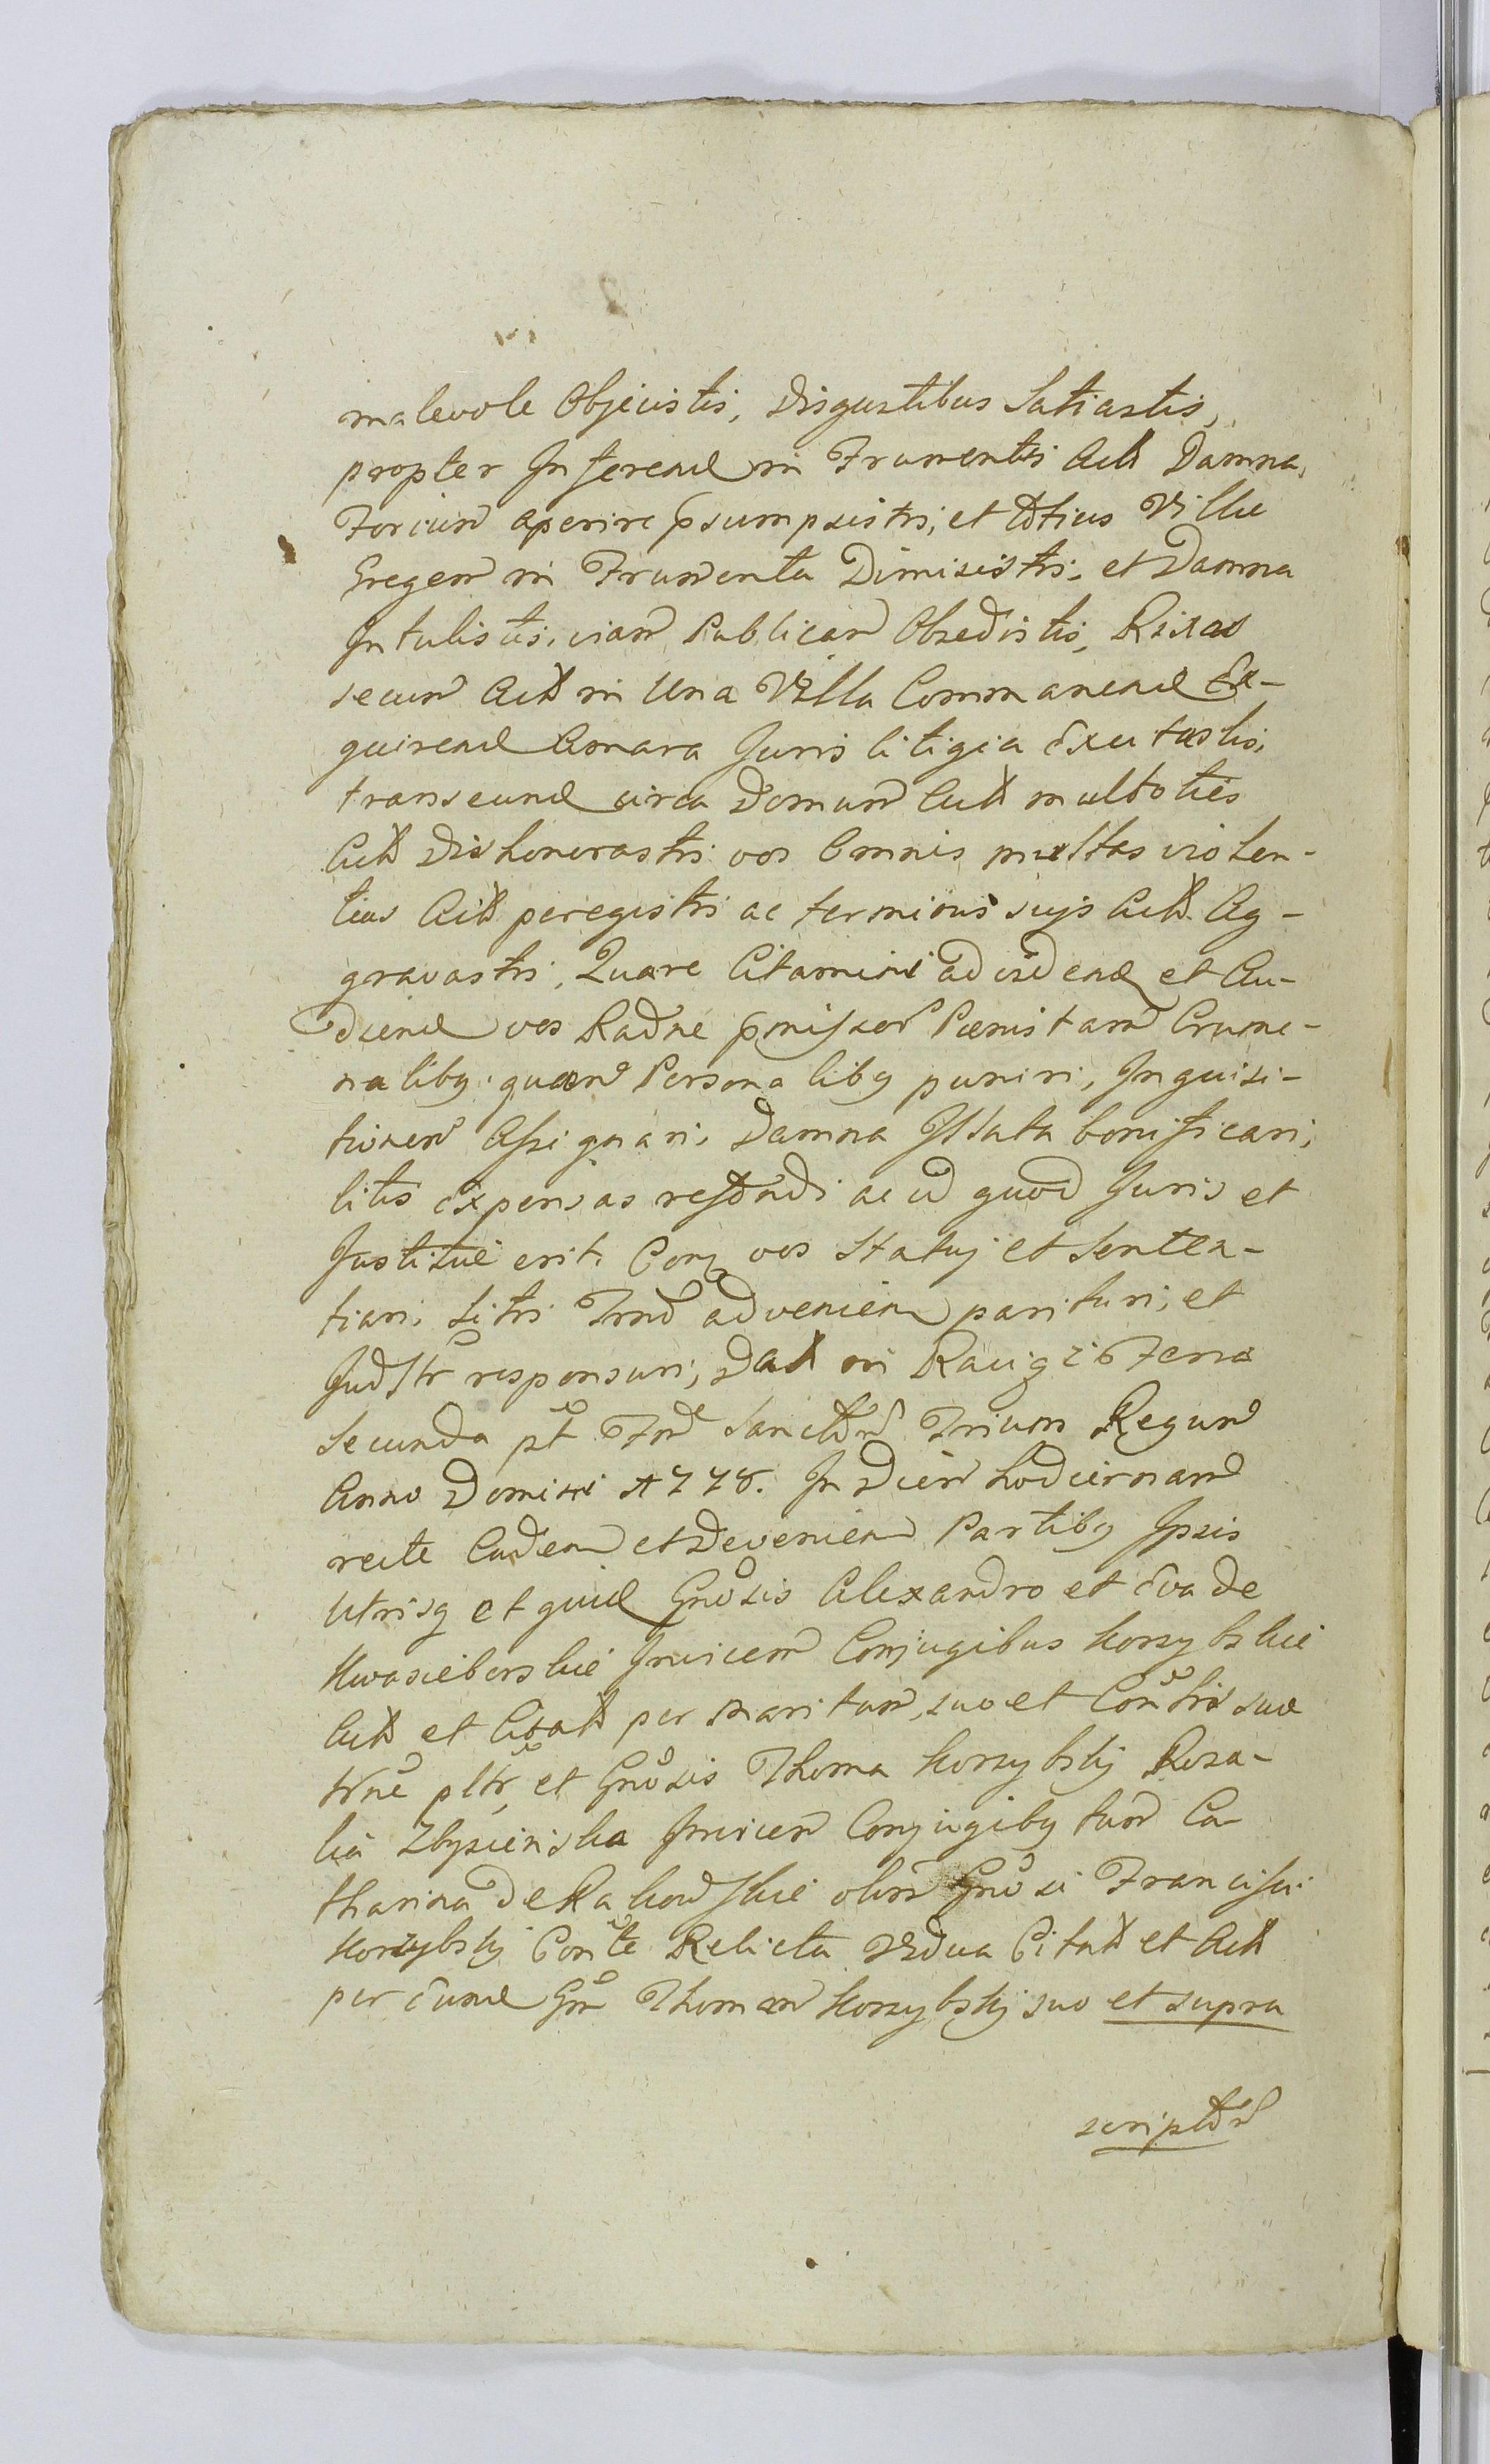 malevole Objecistis, Disgustibus Satiastis,
propter Inferend in Frumentis Actt Damna,
Forium aperire psumpsistis, et totius Villæ
Gregem in Frumenta Dimisistis, et Damna
Intulistis, viam Publicam Obsedistis, Rixas
secum Actt in Una Villa Commanend Ex-
quirend Amara Juris litigia Excitastis,
transeund circa Domum Actt multoties
Actt Dishonorastis vos Omnis multas violen-
tias Actt peregistis ac terminis suis Actt Ag-
gravastis, Quare Citamini ad videnđ et Au-
diend vos Radne pmissor Pœnis tam Crume-
nalibg quam Personalibg puniri, Inquisi-
tionem Assignari, Damna Illata bonificari,
litis expensas refundi ac id quod Juris et
Justitiæ erit. Porg vos Statuj et Senten-
tiari. Sitis Trno advenien parituri, et
Judltr responsuri, Datt in Raciąż Feria
Secunda pt Fest Sanctor Trium Regum
Anno Domini 1778. In Diem hodiernam
recte Caden et Devenien Partibg Ipsis
Utrisq et quid Gnosis Alexandro et Eva de
Kwasieborskie Invicem Conjugibus Korzybskie
Actt et Citatt per Maritum suo et Conthis suæ
Nne pltr, et Gnosis Thoma Korzybskj Rosa-
lia Zbysienska Invicem Conjugibg tum Ca-
tharina de Rakowskie olim Gnosi Francisci
Korzybskj Conte Relicta Vidua Citatt et Actt
per Eund Gm Thomam Korzybskj suo et supra
scriptor